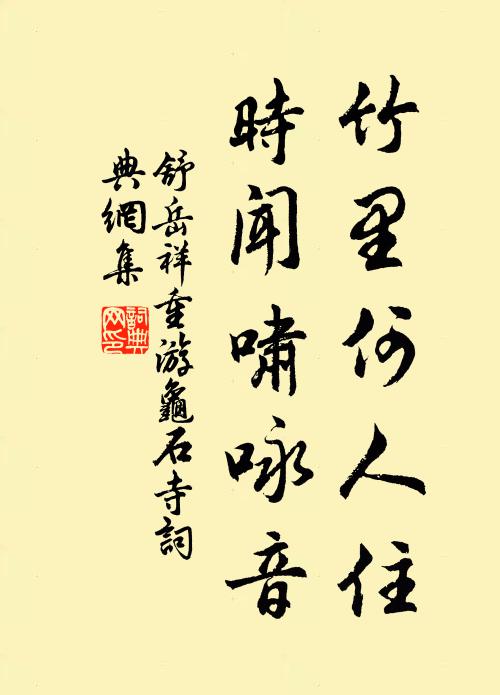 竹里何人住
時闻嘯咏音
舒岳祥重游龜石寺詞
典網集
詞典网印